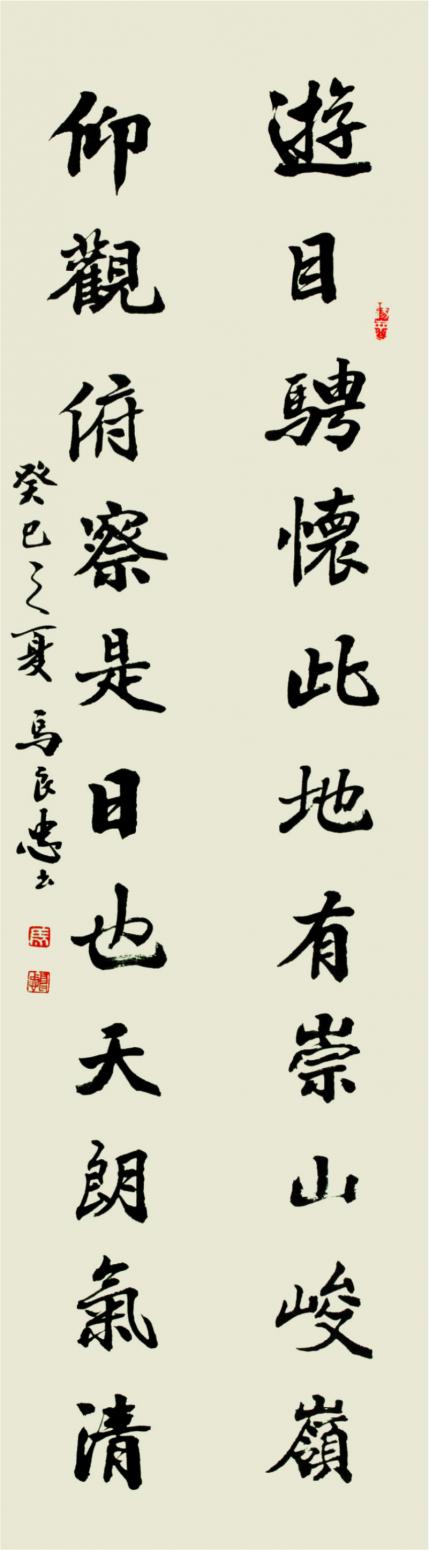 遊目騁懷此地有崇山峻嶺
仰觀俯察是日也天朗氣清
癸巳之夏馬良忠书